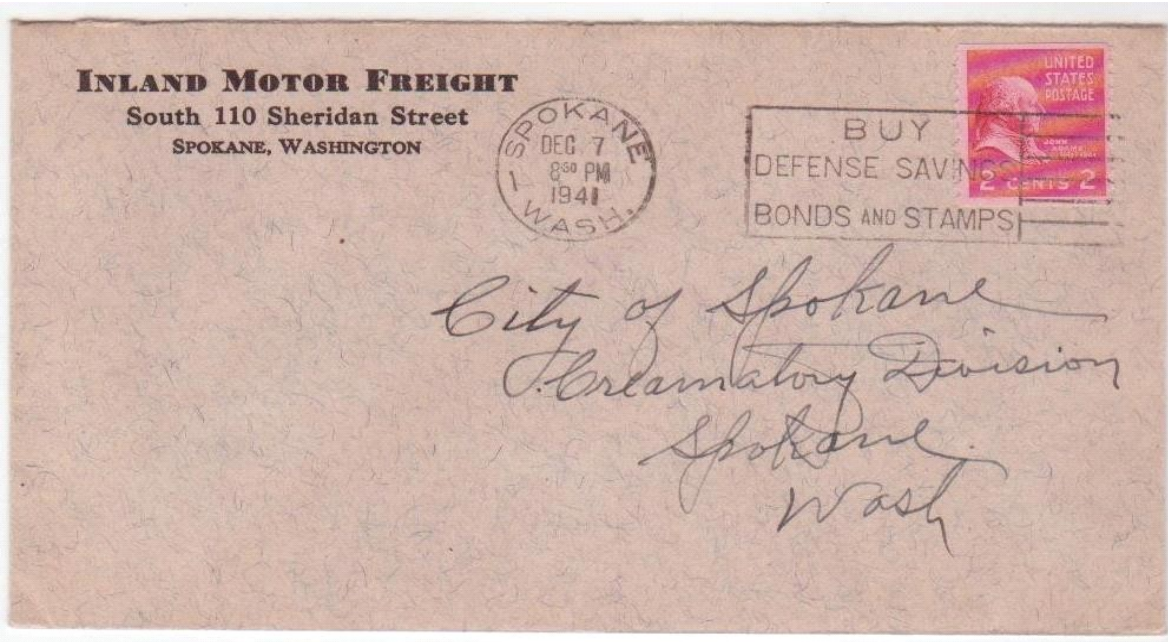 INLAND MOTOR FREIGHT
South 110 Sheridan Street
SPOKANE, WASHINGTON
SPOKANE
DEC 7
8 30 PM
1941
WASH.
BUY
DEFENSE SAVINGS
BONDS AND STAMPS
UNITED
STATES
POSTAGE
JOHN
ADAMS
2 CENTS 2
City of Spokane
Creamatory Division
Spokane.
Wash